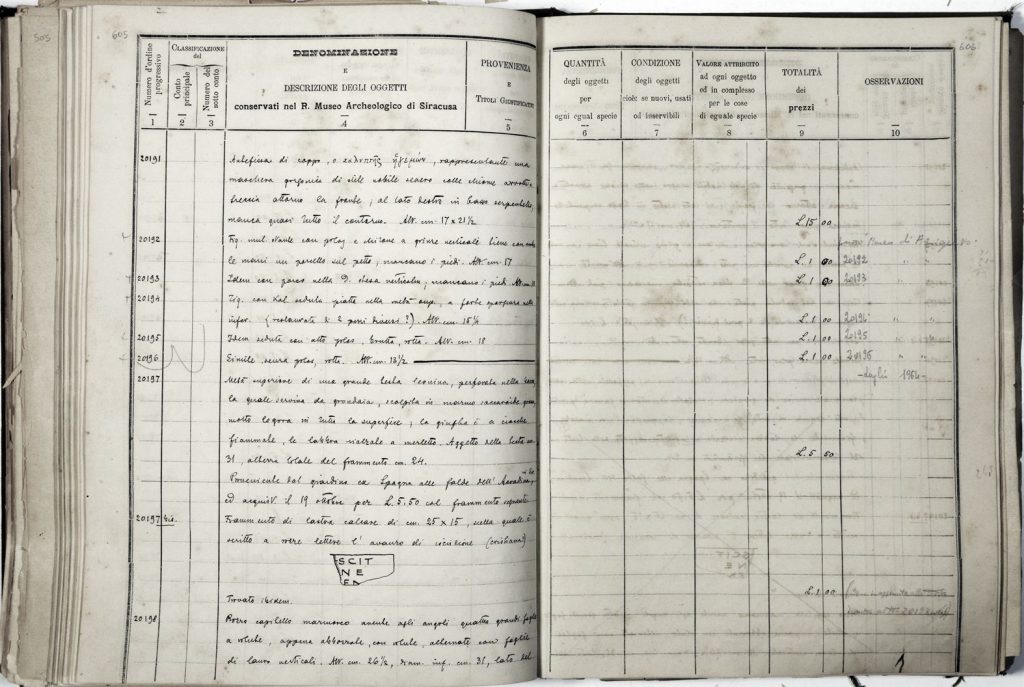 505
605
Numero d'ordine
progressivo
CLASSIFICAZIONE
del
Conto
principale
Numero del
sotto conto
DENOMINAZIONE
E
DESCRIZIONE DEGLI OGGETTI
conservati nel R. Museo Archeologico di Siracusa
PROVENIENZA
E
TITOLI GIUSTIFICATIVI
1 2 3 4 5
20191 Antefissa di cappo, o καλυπτὴρ ἡγεμών, rappresentante una
maschera gorgonica di stile nobile severo colle chiome
treccia attorno la fronte; al lato destro in basso serpentello,
manca quasi tutto il contorno. Alt. cm. 17 x 21 1/2
20192 Fig. mul. stante con polos e chitone a grinze verticali tiene con
le mani un porcello sul petto; mancano i piedi. Alt. cm. 17
20193 Idem con porco nella D. stesa verticale, mancano i piedi
20194 Fig. con kal. seduta piatta nella metà sup., a forte
infer. (restaurata di 2 pezzi diversi?). Alt. cm. 15 1/2
20195 Idem seduta con alto polos, brutta, rotta. Alt. cm. 18
20196 Simile, senza polos, rotta. Alt. cm. 13 1/2
20197 Metà superiore di una grande testa leonina, perforata nella
la quale serviva da grondaia, scolpita in marmo saccaroide
molto logora in tutta la superficie; la giunta è a ciocche
fiammate, le labbra rialzate a merletto. Aggetto della testa cm.
31, altezza totale del frammento cm. 24.
Proveniente dal giardino ex Spagna alle falde dell'Acradina,
ed acquist. il 19 ottobre per L. 5.50 col frammento seguente
20197 bis. Frammento di lastra calcare di cm. 25 x 15, nella quale è
scritto a rozze lettere l'avanzo di iscrizione (cristiana?)
SCIT
NE
Trovato ibidem.
20198 Rozzo capitello marmoreo avente agli angoli quattro grandi foglie
a volute, appena abbozzate, con volute, alternate con foglie
di lauro verticali. Alt. cm. 26 1/2, diam. inf. cm. 31, lato del
606
QUANTITÀ
degli oggetti
per
ogni egual specie
6
CONDIZIONE
degli oggetti
cioè: se nuovi, usati
od inservibili
7
VALORE ATTRIBUITO
ad ogni oggetto
ed in complesso
per le cose
di eguale specie
8
TOTALITÀ
dei
prezzi
9
OSSERVAZIONI
10
L. 15 00
L. 1 00 20192 " "
L. 1 00 20193 " "
L. 1 00 20194 " "
L. 1 00 20195 " "
L. 1 00 20196 " "
- luglio 1964 -
L. 5 50
L. 1 00